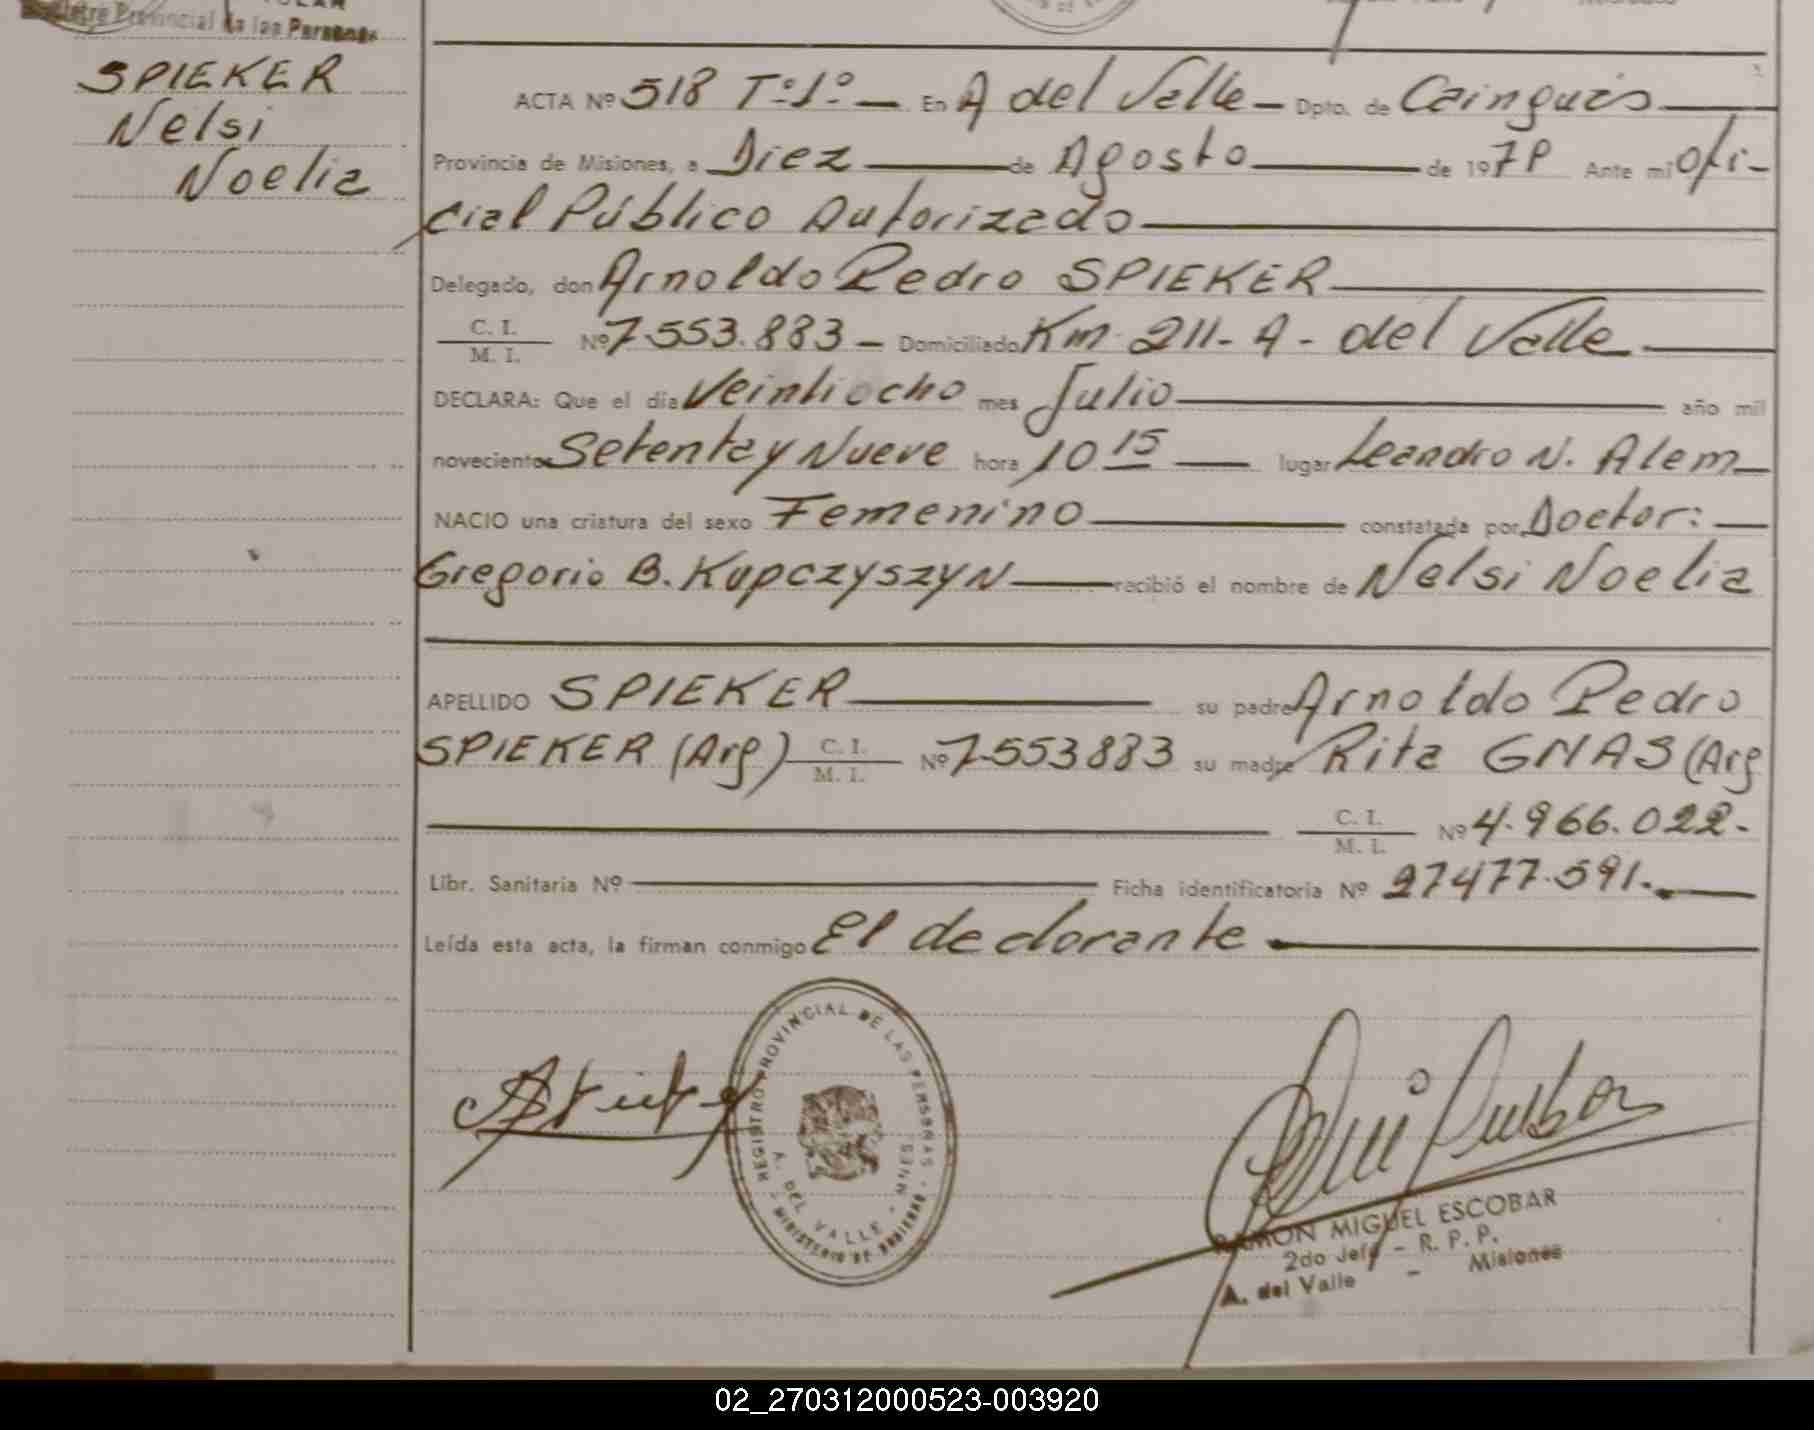 Registro Provincial de las Personas
SPIEKER
Nelsi
Noelia
ACTA Nº 518 Tº1º En A del Valle Dpto. de Cainguás
Provincia de Misiones, a Diez de Agosto de 1979 Ante mi Ofi-
cial Público Autorizado
Delegado, don Arnoldo Pedro SPIEKER
C. I.
M. I. Nº 7.553.883 Domiciliado Km. 211 - A. del Valle
DECLARA: Que el día Veintiocho mes Julio año mil
novecientos Setenta y Nueve hora 10 15 lugar Leandro N. Alem
NACIO una criatura del sexo Femenino constatada por Doctor:
Gregorio B. KUPCZYSZYN recibió el nombre de Nelsi Noelia
APELLIDO SPIEKER su padre Arnoldo Pedro
SPIEKER (Arg) C. I. M. I. Nº 7.553883 su madre Rita GNAS (Arg
C. I.
M. I. Nº 4.966.022.
Libr. Sanitaria Nº Ficha identificatoria Nº 27477.591.
Leída esta acta, la firman conmigo El declarante
REGISTRO PROVINCIAL DE LAS PERSONAS
A. DEL VALLE - MNES.
MINISTERIO DE GOBIERNO
RAMON MIGUEL ESCOBAR
2do Jefe - R. P. P.
A. del Valle - Misiones
02_270312000523-003920